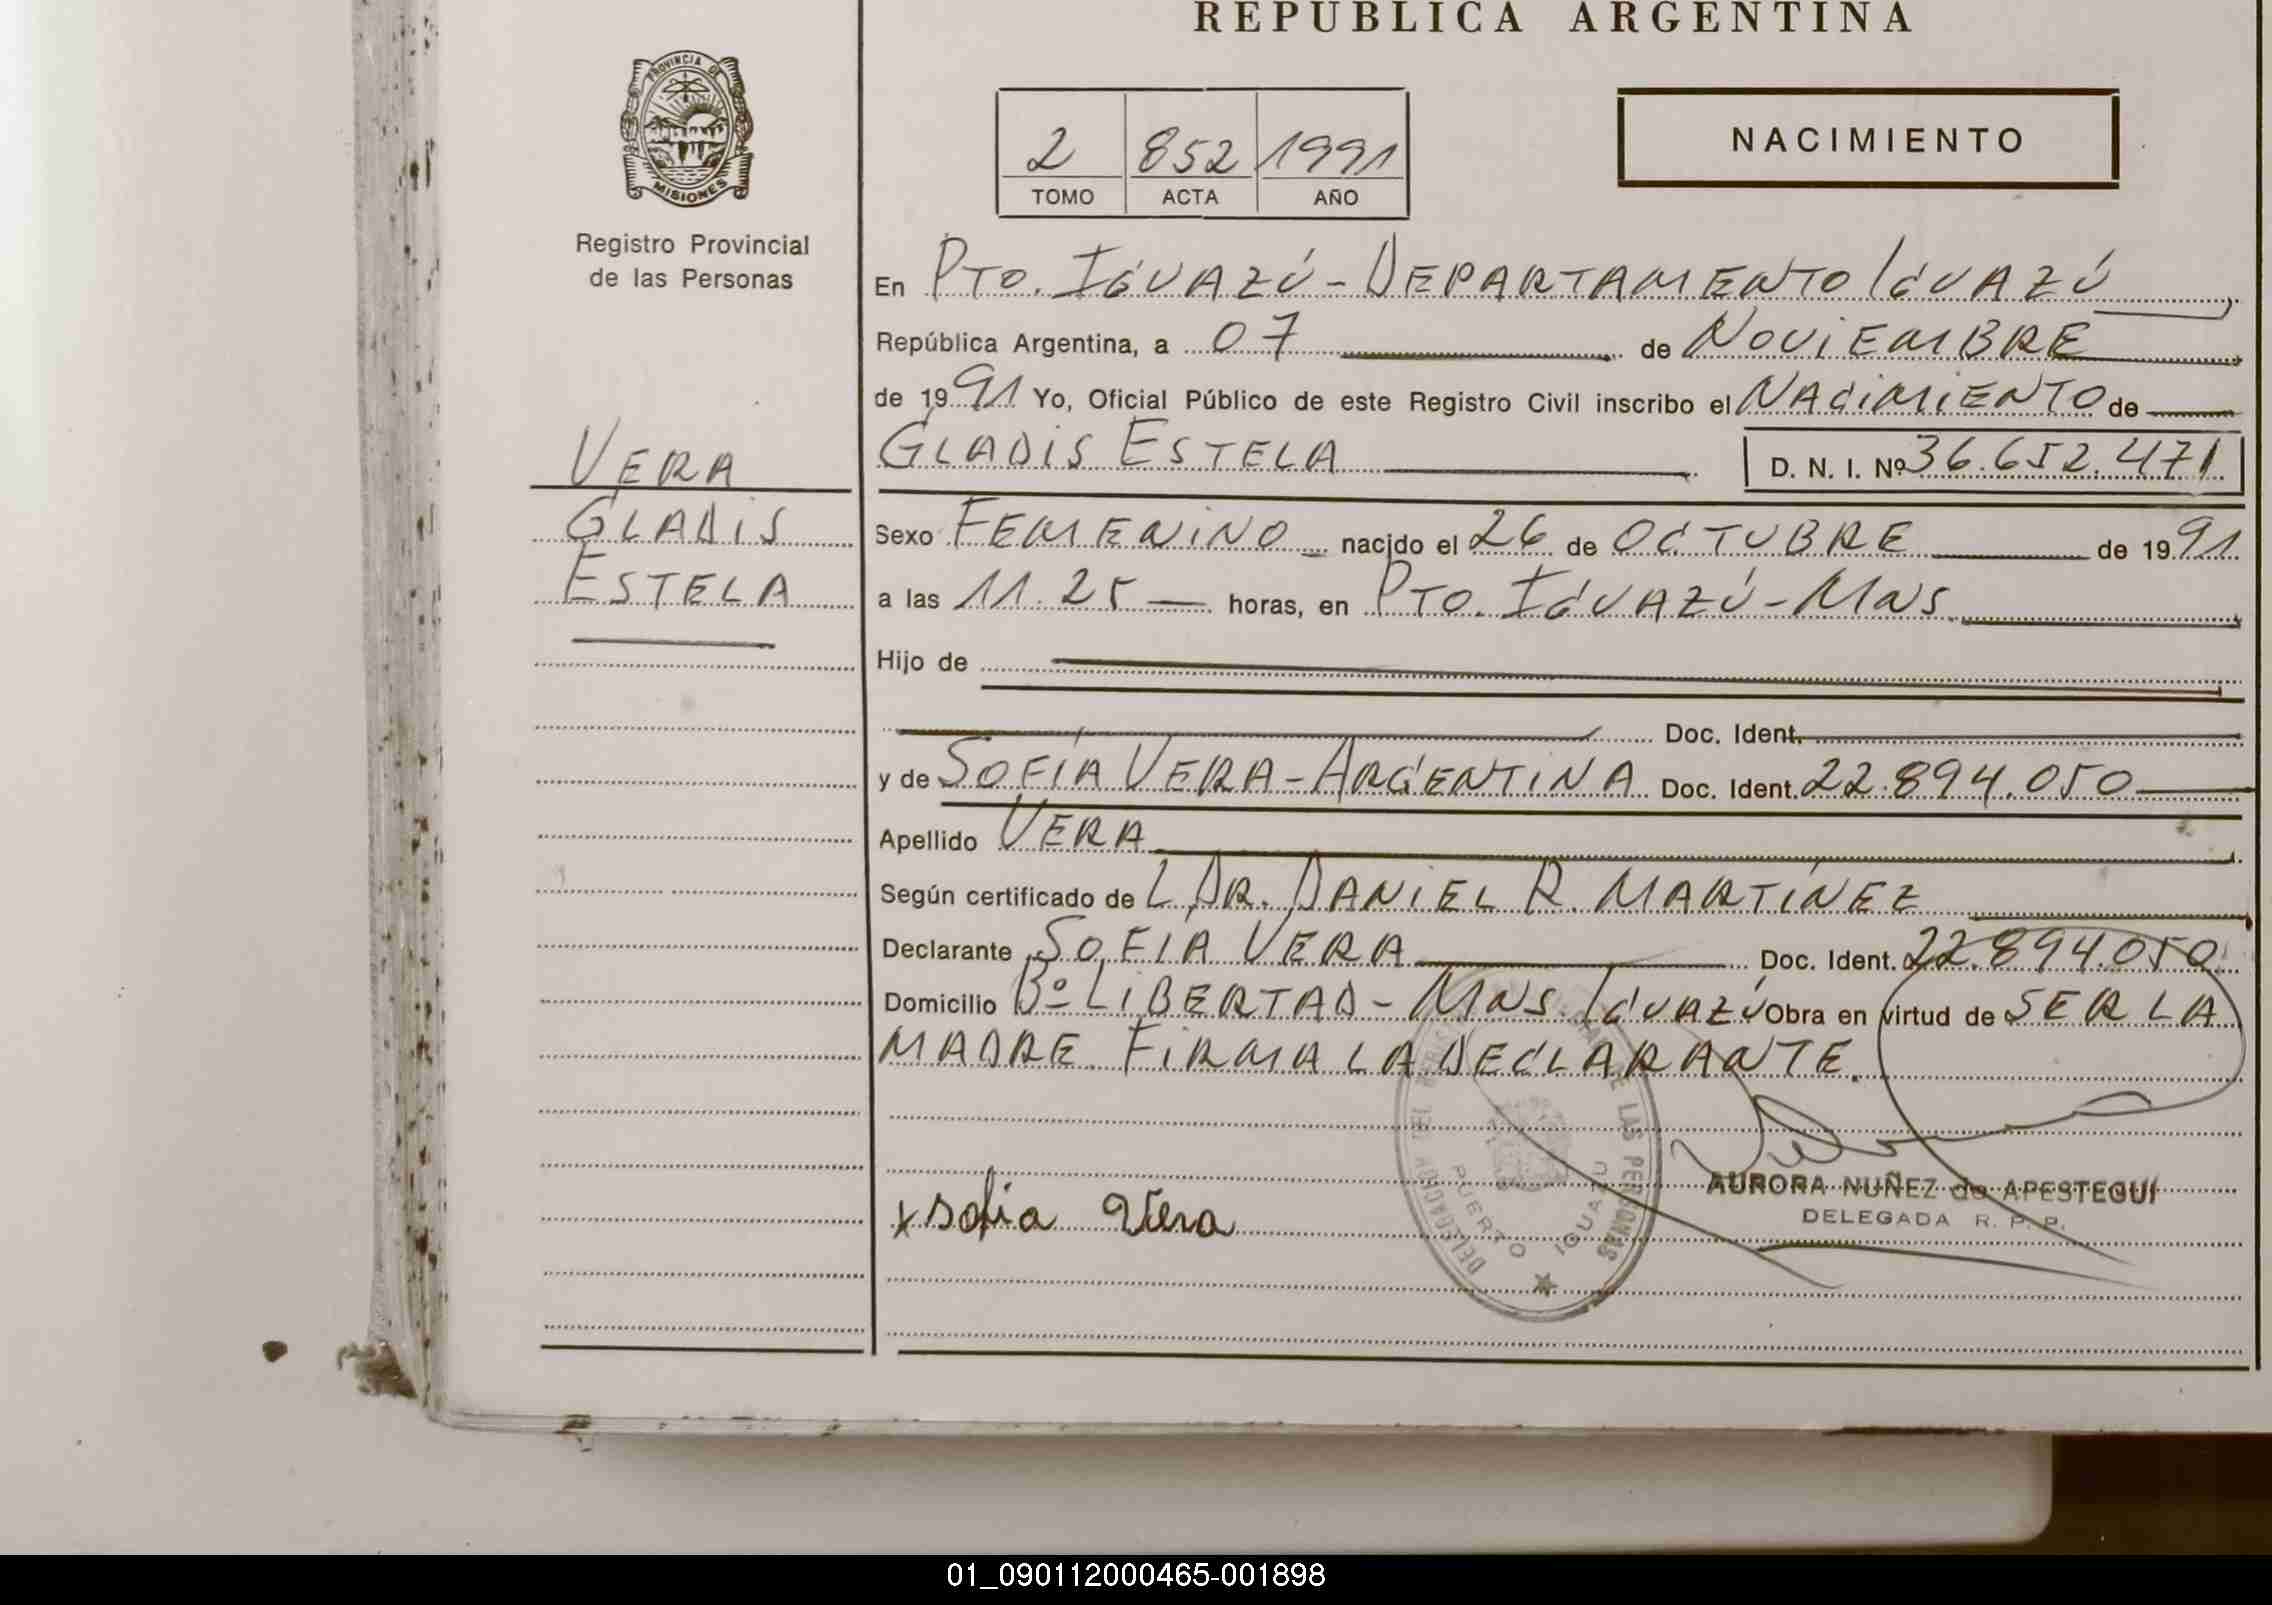 REPUBLICA ARGENTINA
PROVINCIA DE
MISIONES
Registro Provincial
de las Personas
2 852 1991
TOMO ACTA AÑO
NACIMIENTO
En PTO. IGUAZÚ - DEPARTAMENTO IGUAZÚ
República Argentina, a 07 de NOVIEMBRE
de 1991 Yo, Oficial Público de este Registro Civil inscribo el NACIMIENTO de
VERA
GLADIS
ESTELA
GLADIS ESTELA D. N. I. Nº 36.652.471
Sexo FEMENINO nacido el 26 de OCTUBRE de 1991
a las 11.25 horas, en PTO. IGUAZÚ - MNS.
Hijo de
Doc. Ident.
y de SOFÍA VERA - ARGENTINA Doc. Ident. 22.894.050
Apellido VERA
Según certificado de L DR. DANIEL R. MARTÍNEZ
Declarante SOFÍA VERA Doc. Ident. 22.894.050
Domicilio Bº LIBERTAD - MNS. IGUAZÚ Obra en virtud de SER LA
MADRE. FIRMA LA DECLARANTE.
x Sofia Vera
DELEGACION DEL LAS PERSONAS
PUERTO IGUAZU
AURORA NUÑEZ de APESTEGUI
DELEGADA R. P. P.
01_090112000465-001898